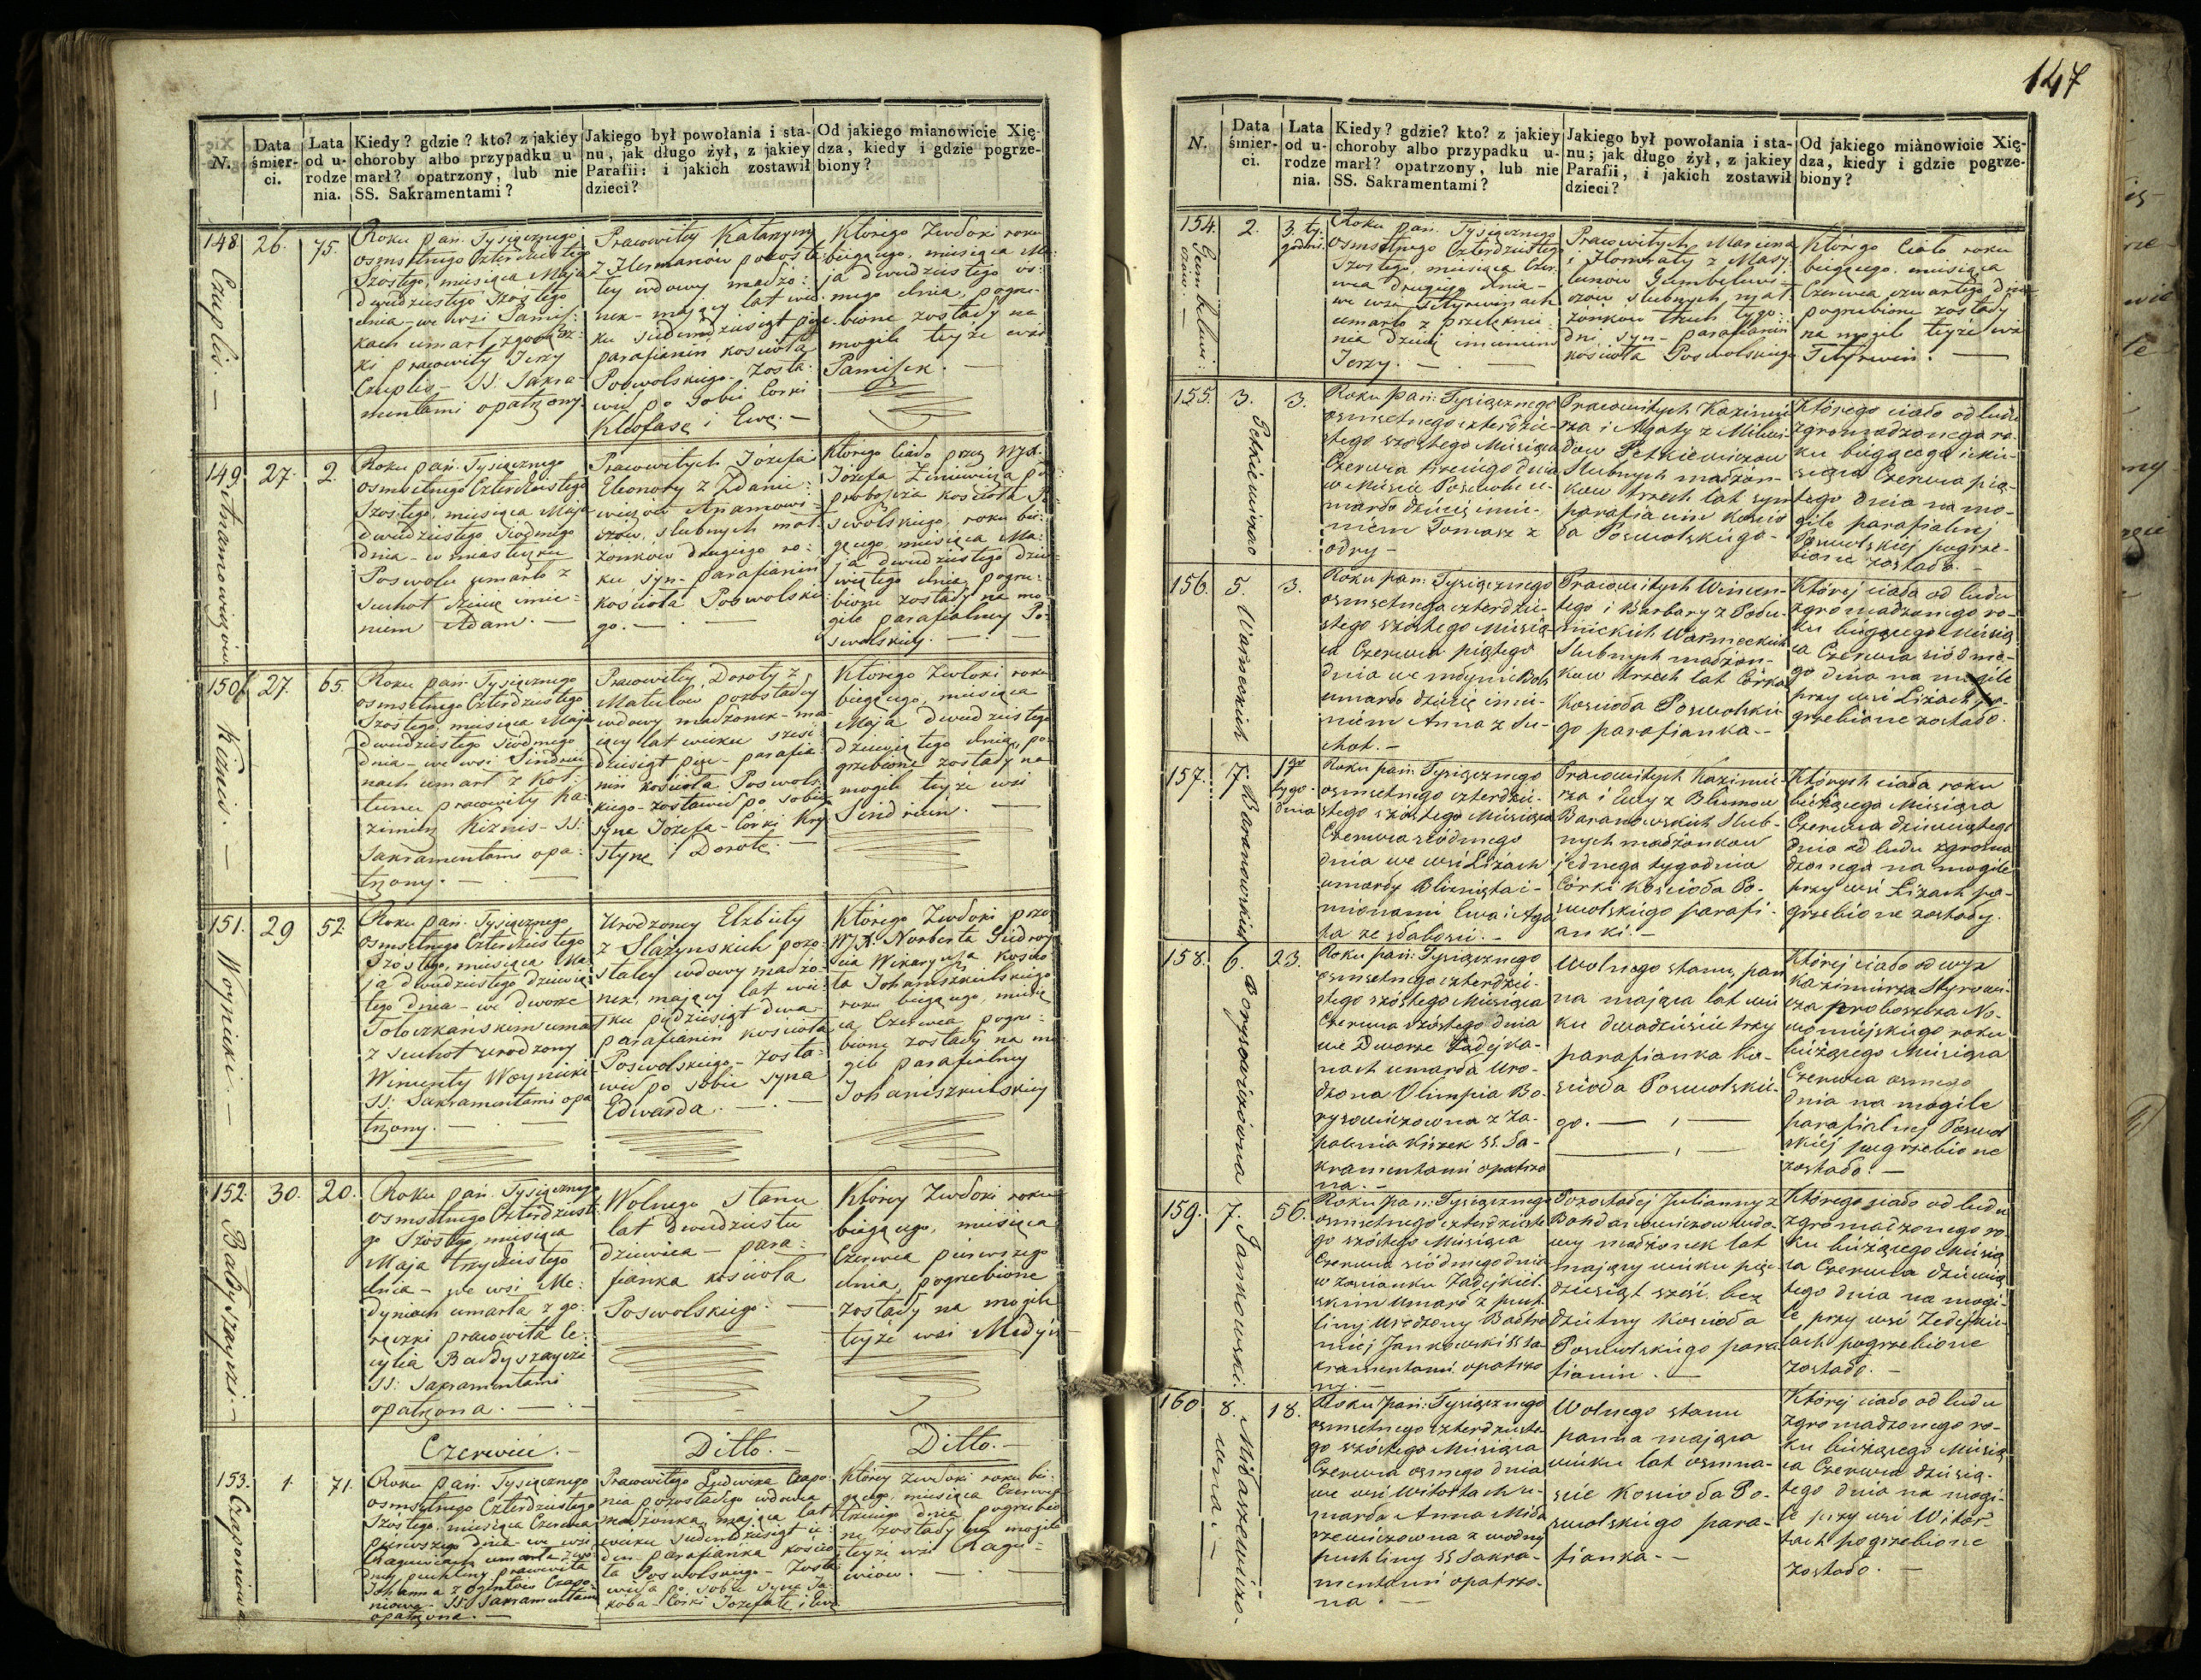 N.
Data śmierci.
Lata od urodzenia.
Kiedy? gdzie? kto? z jakiey
choroby albo przypadku u-
marł? opatrzony, lub nie
SS. Sakramentami?
Jakiego był powołania i sta-
nu, jak długo żył, z jakiey
Parafii: i jakich zostawił
dzieci?
Od jakiego mianowicie Xię-
dza, kiedy i gdzie pogrze-
biony?
148
Czuplis. —
26.
75.
Roku pań. Tysiącznego
osmsetnego Czterdziestego
Szóstego, miesiąca Maja
dwudziestego szóstego
dnia – we wsi Pamiś:
kach umarł z gorącz:
ki pracowity Jerzy
Czuplis – SS. Sakra-
mentami opatrzony.
Pracowitey Katarzyny
pozosta:
łey wdowy małżo:
nek – mający lat wie:
ku siedmdziesiąt pięć
parafianin kościoła
Poswolskiego – Zosta:
wił po sobie Corki
Kleofasę i Ewę. –
Którego Zwłoki roku
biegącego, miesiąca Ma:
ja dwudziestego ós:
mego dnia, pogrze:
bione zostały na
mogile teyże wsi
149
Adamowiczów
27.
2.
Roku pań. Tysiącznego
osmsetnego Czterdziestego
Szóstego, miesiąca Maja
dwudziestego siódmego
dnia – w miasteczku
Poswolu umarło z
suchot dziecię imie:
niem Adam. —
Pracowitych Józefa i
Eleonory z Zdanie:
wiczów Adamowi:
czów, slubnych mał:
żonków drugiego ro:
ku syn – parafianin
kościoła Poswolskie:
go. —
Którego Ciało przez WJX.
Józefa
proboszcza kościoła Po
swolskiego, roku bie:
gącego, miesiąca Ma:
ja dwudziestego dzie:
wiątego dnia, pogrze:
bione zostały na mo
gile parafialney Po:
swolskiey. —
150
Kiznis. —
27.
65.
Roku pań. Tysiącznego
osmsetnego Czterdziestego
Szóstego, miesiąca Maja
dwudziestego siódmego
dnia – we wsi Sindriu:
nach umarł z Koł:
tuna pracowity Ka:
zimierz Kiznis – SS:
Sakramentami opa:
trzony. —
Pracowitey Doroty z
Matulow pozostałey
wdowy małżonek – ma
iący lat wieku sześć
dziesiąt pięć – parafia:
nin kościoła Poswols
kiego – zostawił po sobie
syna Józefa – Corki Kry
stynę i Dorotę. —
Którego Zwłoki roku
biegącego, miesiąca
Maja dwudziestego
dziewiątego dnia, po:
grzebione zostały na
mogile teyże wsi
Sindriun. —
151.
Woynicki. —
29
52.
Roku pań. Tysiącznego
osmsetnego Czterdziestego
Szóstego, miesiąca Ma
ja dwudziestego dziewią
tego dnia – we dworze
Tołoczkańskim umarł
z suchot urodzony
Wincenty Woynicki
SS: Sakramentami opa
trzony. —
Urodzoney Elzbiety
z Slażynskich pozo:
stałey wdowy małżo:
nek, mający lat wie:
ku pięćdziesiąt dwa
parafianin kościoła
Poswolskiego – Zosta:
wił po sobie syna
Edwarda. —
Którego Zwłoki przez
WJX. Norberta Giedroy
cia Wikaryusza Kościo
ła Johaniszkielskiego
roku biegącego, miesią
ca Czerwca pogrze:
bione zostały na mo
gile parafialney
Johaniszkielskiey
152.
Bałdyszayczi. –
30.
20.
Roku pań. Tysiącznego
osmsetnego Czterdziest:
go Szóstego, miesiąca
Maja trzydziestego
dnia – we wsi Me:
dyniach umarła z go:
rączki pracowita Ce:
cylia Bałdyszayczi
SS: Sakramentami
opatrzona. —
Wolnego stanu
lat dwudziestu
dziewica – para:
fianka kościoła
Poswolskiego. —
Którey Zwłoki roku
biegącego, miesiąca
Czerwca pierwszego
dnia, pogrzebione
zostały na mogile
teyże wsi Medyń
Czerwiec. –
Ditto. –
Ditto. –
153.
Czaponiowa
1
71.
Roku pań. Tysiącznego
osmsetnego Czterdziestego
Szóstego, miesiąca Czerwca
pierwszego dnia – we wsi
umarła z wo:
dney puchliny pracowita
Johanna z Ogintów Czapo:
niowa – SS. Sakramentami
opatrzona. —
Pracowitego Ludwika Czapo:
nia pozostałego wdowca
małżonka, mająca lat
wieku siedmdziesiąt je:
den parafianka kościo
ła Poswolskiego – Zosta
wiła po sobie syna Ja:
koba – Corki Jozefatę i Ewę
Którey zwłoki roku bie:
gącego, miesiąca Czerwca
trzeciego dnia pogrzebio
ne zostały na mogile
teyże wsi Ragu:
wiow. —
147
N.
Data śmierci.
Lata od urodzenia.
Kiedy? gdzie? kto? z jakiey
choroby albo przypadku u-
marł? opatrzony, lub nie
SS. Sakramentami?
Jakiego był powołania i sta-
nu; jak długo żył, z jakiey
Parafii, i jakich zostawił
dzieci?
Od jakiego mianowicie Xię-
dza, kiedy i gdzie pogrze-
biony?
154.
Gumbelewi:
czow. —
2.
3. ty:
godni.
Roku pań. Tysiącznego
osmsetnego Czterdziestego
Szóstego, miesiąca Czer
wca drugiego dnia –
we wsi Tetyrwinach
umarło z przelęknie
nia dziecię imieniem
Jerzy. —
Pracowitych Marcina
i Honoraty z Masy
lunow Gumbelewi:
czow slubnych mał
żonkow trzech tygo:
dni syn – parafianin
kościoła Poswolskiego
Którego Ciało roku
biegącego, miesiąca
Czerwca czwartego dnia
pogrzebione zostały
na mogile teyże wsi
Tetyrwin. —
155.
Petkiewiczow
3.
3.
Roku pań: Tysiącznego
osmsetnego czterdzie-
stego szóstego Miesiąca
Czerwca trzeciego dnia
w Mieście Poswolu u-
marło dziecię imie-
niem Tomasz z
odry –
Pracowitych Kazimie
rza i Agaty z Milewi
czow Petkiewiczow
Slubnych małżon-
kow trzech lat syn
parafianin Koscio
ła Poswolskiego –
Którego ciało od ludu
zgromadzonego ro-
ku biegącego mie-
siąca Czerwca pią-
tego dnia na mo-
gile parafialnej
Poswolskiej pogrze-
bione zostało. –
156.
Warneckich
5.
3.
Roku pan: Tysiącznego
osmsetnego czterdzie-
stego szóstego Miesią-
ca Czerwca piątego
dnia we
umarło dziecię imie-
niem Anna z su-
chot. –
Pracowitych Wincen-
tego i Barbary z Podu-
nickich Warneckich
Slubnych małżon-
kow trzech lat Córka
Kościoła Poswolskie
go parafianka. –
Której ciało od ludu
zgromadzonego ro-
ku bieżącego Miesią
ca Czerwca siódme-
go dnia na mogile
przy wsi Liżach po-
grzebione zostało.
157.
Baranowskich
7.
1go
tygo-
dnia
Roku pań: Tysiącznego
osmsetnego czterdzie-
stego szóstego Miesiąca
Czerwca siódmego
dnia we wsi Liżach
umarły Bliźnięta i-
mionami Ewa i Aga
ta ze słabości. –
Pracowitych Kazimie-
rza i Ewy z Blumow
Baranowskich Slub-
nych małżonkow
jednego tygodnia
Córki Kościoła Po-
swolskiego parafi-
anki. –
Których ciała roku
bieżącego Miesiąca
Czerwca dziewiątego
dnia od ludu zgroma
dzonego na mogile
przy wsi Liżach po-
grzebione zostały.
158.
Borysowiczowna
6.
23.
Roku pań: Tysiącznego
osmsetnego czterdzie-
stego szóstego Miesiąca
Czerwca szóstego dnia
we Dworze Zadejka-
nach umarła Uro-
dzona Olimpia Bo-
rysowiczowna z Za-
palenia Kiszek SS. Sa-
kramentami opatrzo
na. –
Wolnego stanu, pan
na mająca lat wie
ku dwadzieście trzy
parafianka Ko-
ścioła Poswolskie-
go. —
Której ciało od WJX
Kazimierza Styrowi-
cza proboszcza No-
womiejskiego roku
bieżącego Miesiąca
Czerwca osmego
dnia na mogile
parafialnej Poswol
skiej pogrzebione
zostało. –
159.
Jankowski.
7.
56.
Roku pań: Tysiącznego
osmsetnego czterdzieste
go szóstego Miesiąca
Czerwca siódmego dnia
w zaścianku Zadejkiel-
skim umarł z puch-
liny Urodzony Bartło
miej Jankowski SS Sa-
kramentami opatrzo
ny. –
Pozostałej Julianny z
Bohdanowiczow wdo-
wy małżonek lat
mający wieku pię-
dziesiąt sześć bez
dzietny Kościoła
Poswolskiego para
fianin. –
Którego ciało od ludu
zgromadzonego ro-
ku bieżącego Miesią
ca Czerwca dziewią
tego dnia na mogi-
le przy wsi Zedejkie-
lach pogrzebione
zostało. –
160
Midaszewiczo-
wna. –
8.
18.
Roku pań: Tysiącznego
osmsetnego czterdzieste-
go szóstego Miesiąca
Czerwca osmego dnia
we wsi Witortach u-
marła Anna Mida
szewiczowna z wodney
puchliny SS Sakra-
mentami opatrzo-
na. –
Wolnego stanu
panna mająca
wieku lat osmna-
ście Kościoła Po-
swolskiego para-
fianka. –
Której ciało od ludu
zgromadzonego ro-
ku bieżącego Miesią
ca Czerwca dziesią-
tego dnia na mogi-
le przy wsi Witor-
tach pogrzebione
zostało. –